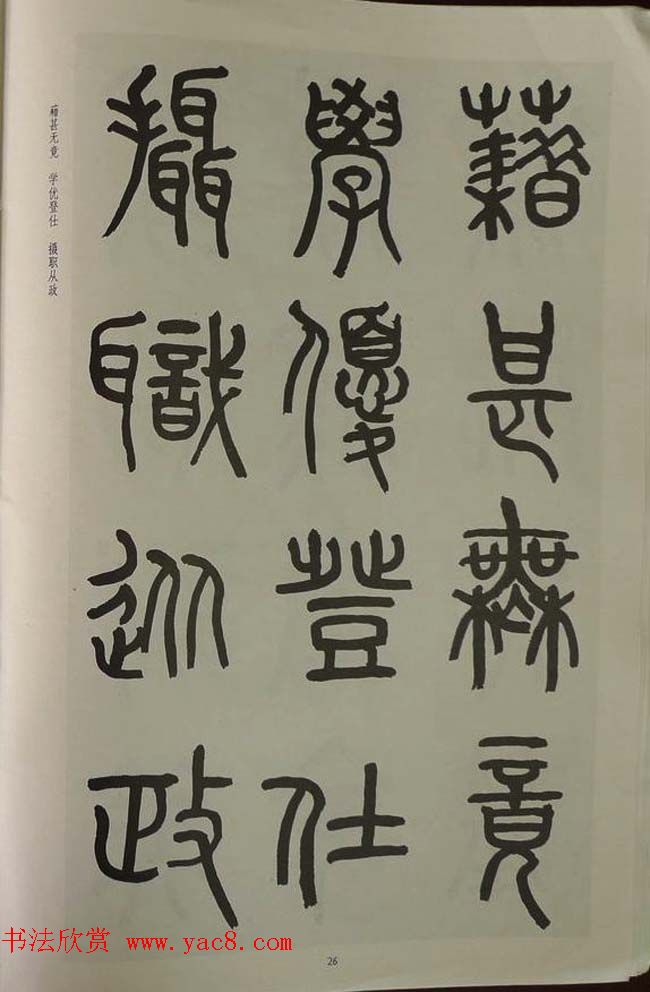 藉甚無竟
學優登仕
攝職從政
藉甚无竟 学优登仕 摄职从政
26
书法欣赏 www.yac8.com